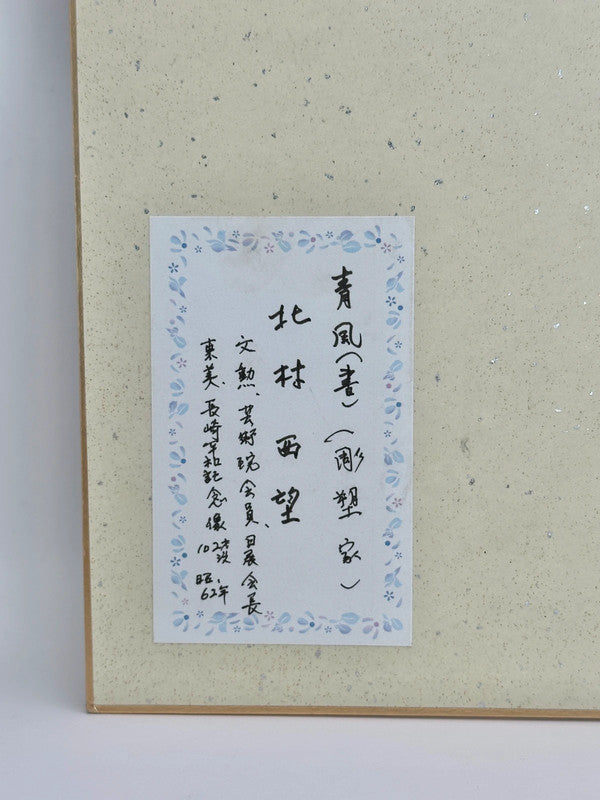 青風(書)(彫塑家)
北村西望
文勲、芸術院会員、日展会長
東美、長崎平和記念像 102才没
昭.62年